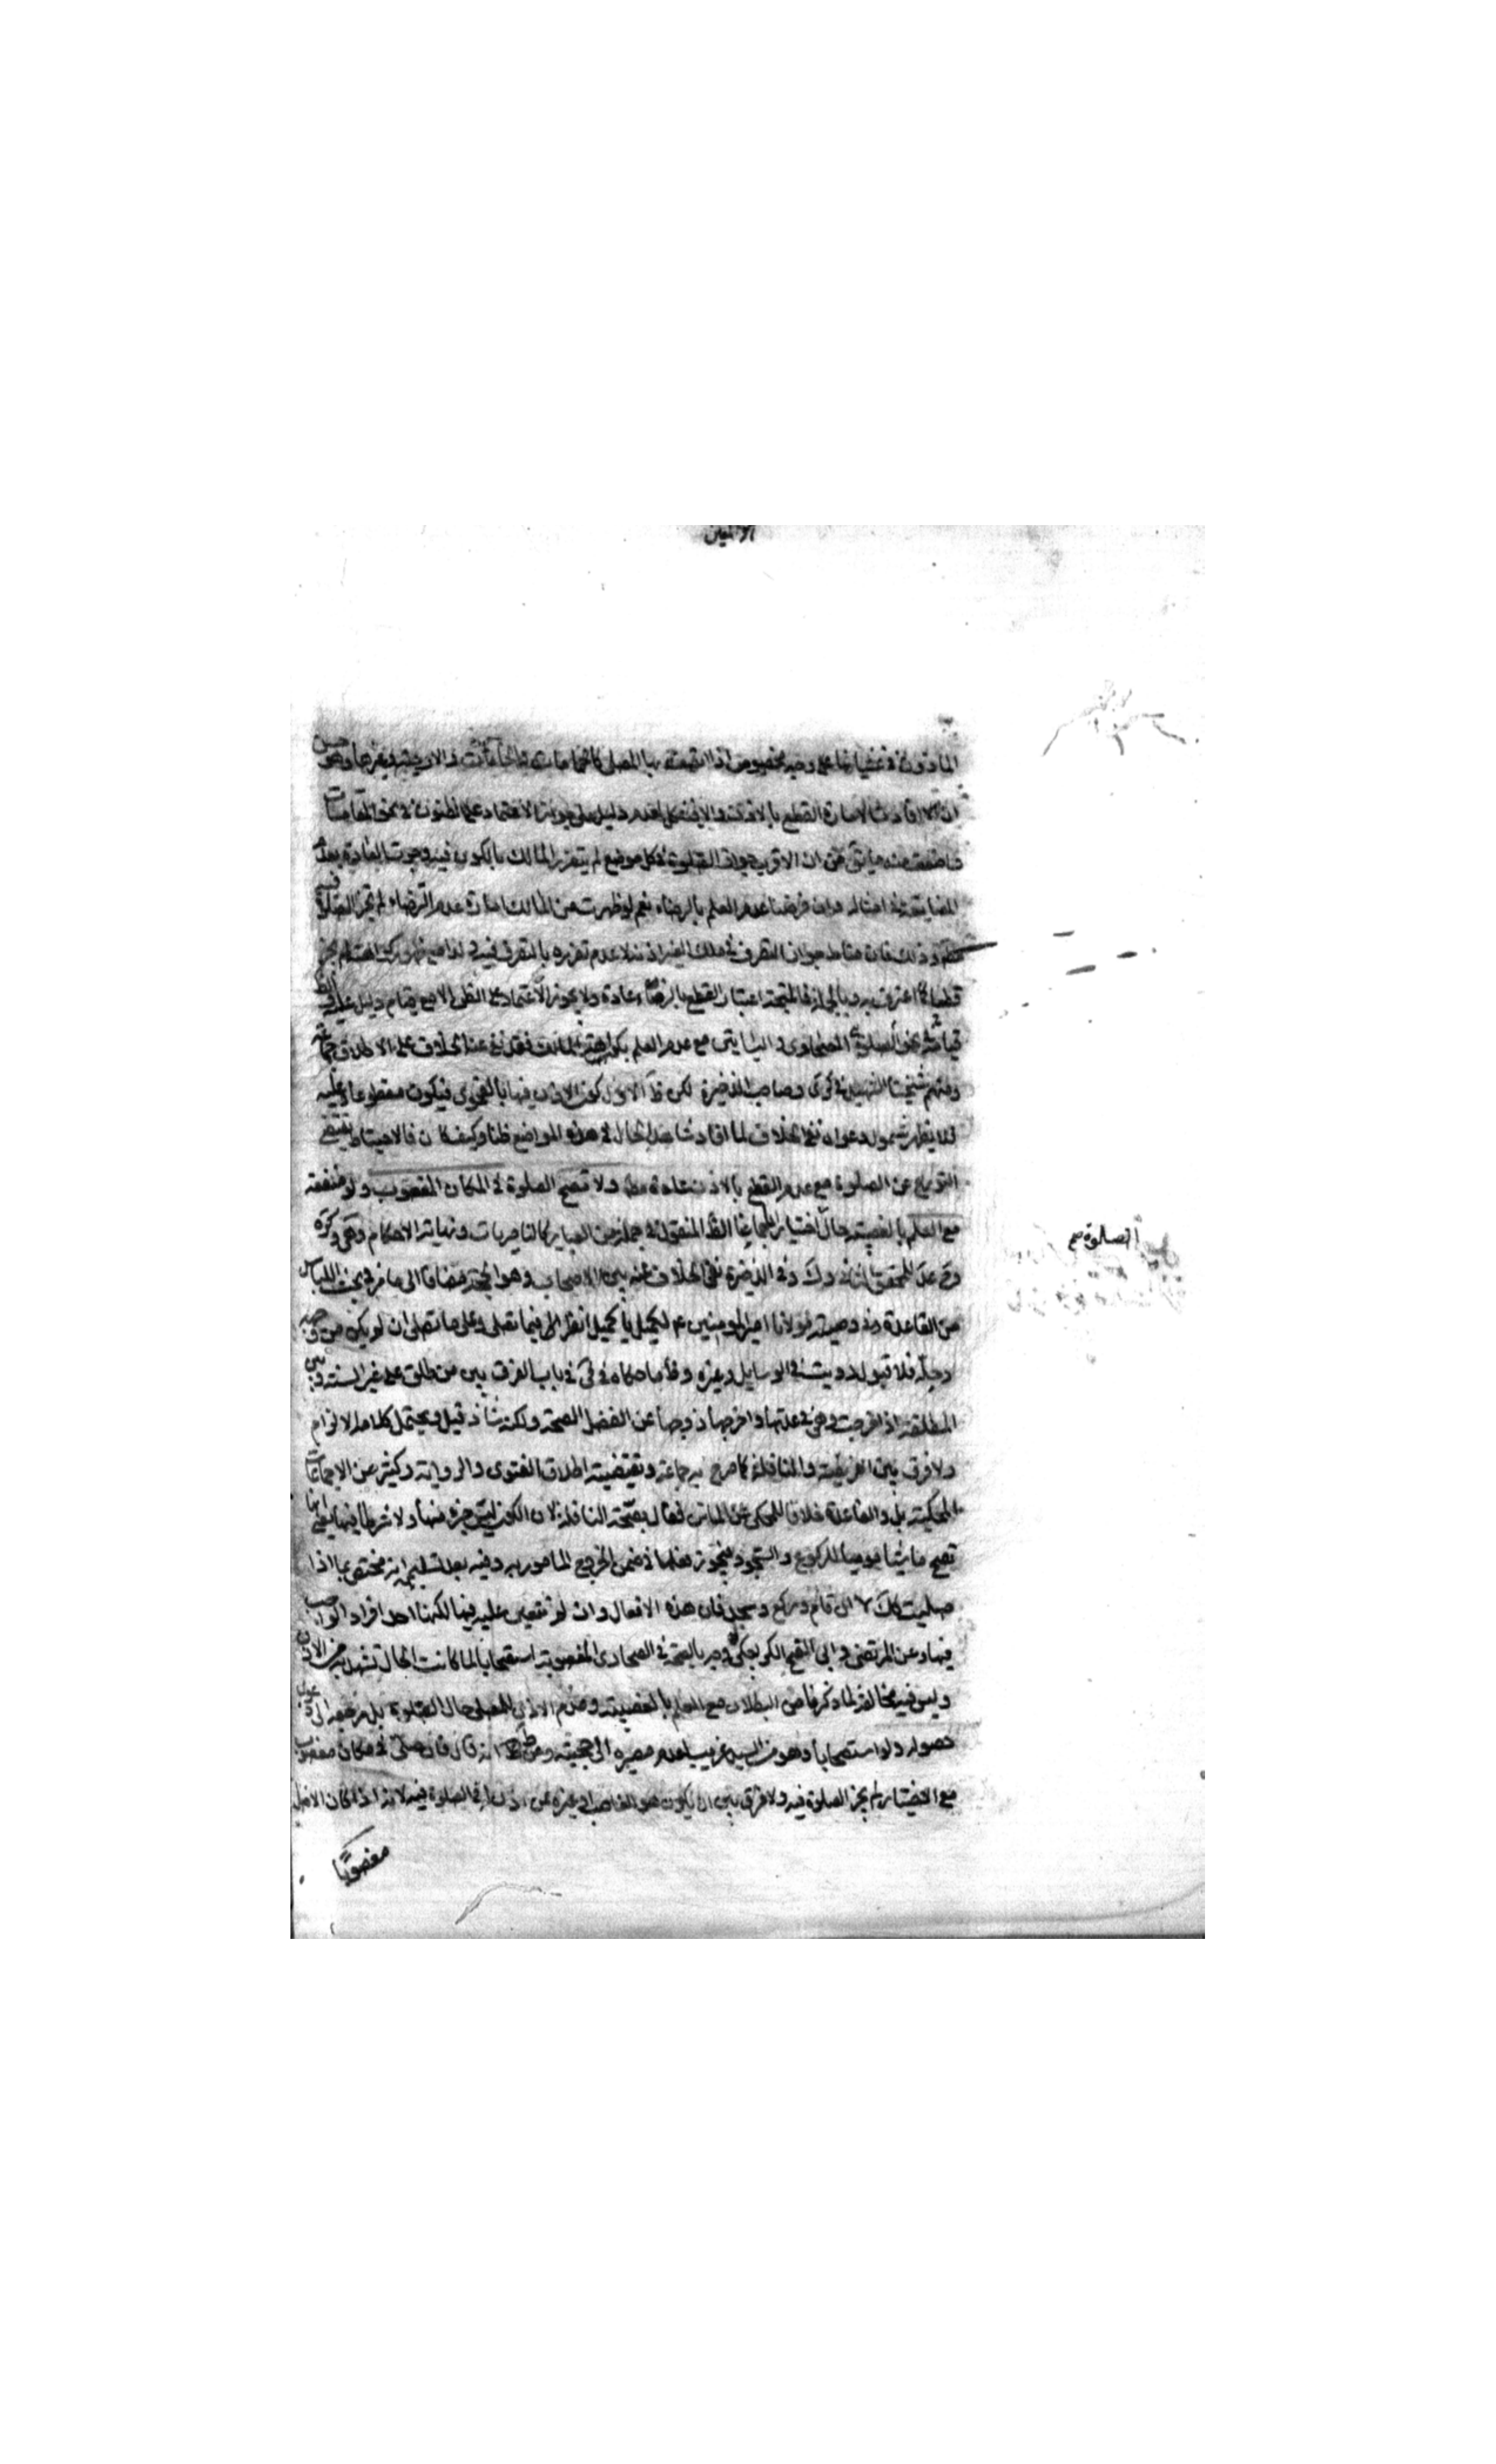 الماذون في غشيانها على وجه مخصوص اذا اتصف بها المصلى كالحمامات والخانات والارحية وغيرها وهو حسن
ان افادت الامارة القطع بالاذن والا فيشكل لعدم دليل على جواز الاعتماد على الظنون في نحو المقامات
من ان الاقرب جواز الصلوة في كل موضع لم يتضرر المالك بالكون فيه وجرت العادة بعدم
المضايقة في امثاله وان فرضنا عدم العلم بالرضاء نعم لو ظهرت من المالك امارة عدم الرضاء لم تجز الصلوة فيه
مط وذلك فان مناط جواز التصرف في ملك الغير اذنه لا عدم تضرره بالتصرف فيه ولذا مع ظهور كراهته لم يجز
قطعا كما اعترف به وبالجملة فالمتجه اعتبار القطع بالرضاء عادة ولا يجوز الاعتماد على الظن الا مع قيام دليل عليه
نحو الصلوة في الصحارى والبساتين مع عدم العلم بكراهة المالك فقد نفى عنه الخلاف على الاطلاق جماعة
ومنهم شيخنا الشهيد في كرى وصاحب الذخيرة لكن ظ الاول كون الاذن فيها بالفحوى فيكون مقطوعا وعليه
فلا يظهر شمول دعواه نفى الخلاف لما افاد شاهد الحال في هذه المواضع ظنا وكيف كان فالاحتياط يقتضى
التورع عن الصلوة مع عدم القطع بالاذن عادة مط ولا تصح الصلوة في المكان المغصوب ولو منفعة
مع العلم بالغصبية حال اختيار اجماعا الظ المنقول في جملة من العباير كالناصريات ونهاية الاحكام وهى وكره
وعن المحقق الثانى وك وفى الذخيرة نفى الخلاف عنه بين الاصحاب وهو الحجة مضافا الى ما مر في بحث اللباس
من القاعدة وفى وصية مولانا امير المومنين ع لكميل يا كميل انظر فيما تصلى وعلى ما تصلى ان لم يكن من وجهه
وحله فلا قبول رويت في الوسايل وغيره واما ما حكاه في فى باب الفرق بين من طلق على غير السنة وبين
المطلقة اذا خرجت وهى في عدتها واخرجها زوجها عن الفضل الصحة ولكنه شاذ قيل ويحتمل كلامه الالزام
ولا فرق بين الفريضة والنافلة كما صرح به جماعة ويقتضيه اطلاق الفتوى والرواية وكثير من الاجماعات
المحكية بل والقاعدة خلافا للمحكى عن الماتن فقال بصحة النافلة لان الكون ليس جزء منها ولا شرطا فيها يعنى انها
تصح ماشيا موميا للركوع والسجود فيجوز فعلها في ضمن الخروج المامور به وفيه بعد تسليمه انه مختص بما اذا
صليت كك لا ان قام وركع وسجد فان هذه الافعال وان لم تتعين عليه فيها لكنها احد افراد الواجب
فيها وعن المرتضى وابى الفتح الكراجكى وجه بالصحة في الصحارى المغصوبة استصحابا لما كانت الحال تشهد به من الاذن
وليس فيه مخالفة لما ذكرنا من البطلان مع العلم بالغصبية وعدم الاذن للمصلى حال الصلوة بل مرجعه الى دعوى
حصوله ولو استصحابا وهو من السيد غريب لعدم مصيره الى حجيته وعن ط انه قال فان صلى في مكان مغصوب
مع الاختيار لم يجز الصلوة فيه ولا فرق بين ان يكون هو الغاصب او غيره ممن اذن له في الصلوة فيه لانه اذا كان الاصل
الصلوة صح
مغصوبا